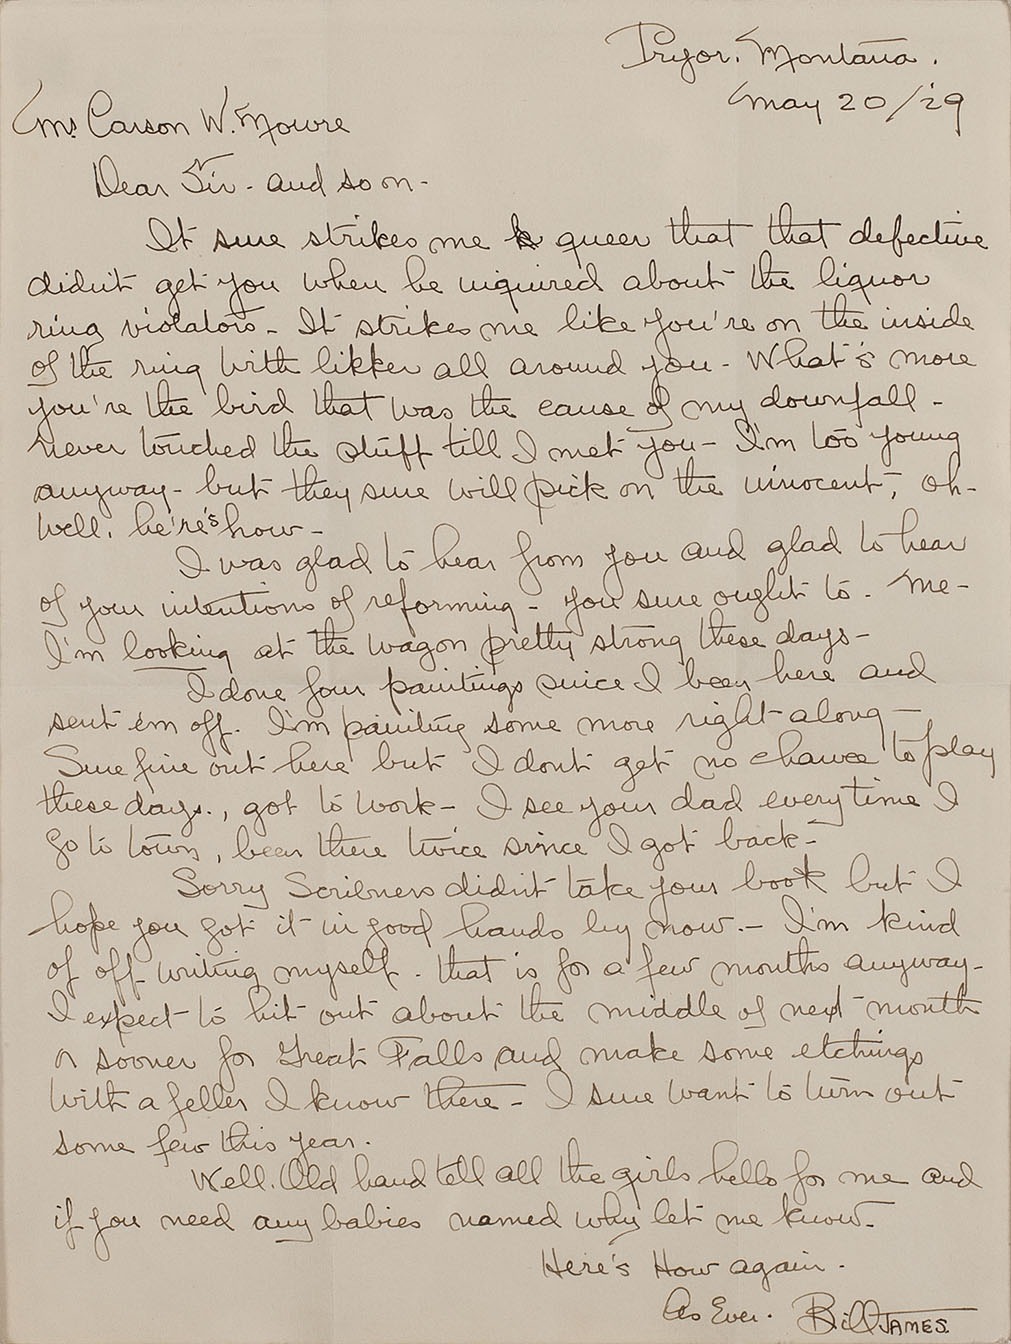 Pryor, Montana.
May 20/29
Mr Carson W. Mowre
Dear Sir - and so on -
It sure strikes me queer that that defective
didn't get you when he inquired about the liquor
ring violators - It strikes me like you're on the inside
of the ring with likker all around you - What's more
you're the bird that was the cause of my downfall -
never touched the stuff till I met you - I'm too young
anyway - but they sure will pick on the innocent, oh -
well, he're's how -
I was glad to hear from you and glad to hear
of your intentions of reforming - you sure ought to. Me -
I'm looking at the wagon pretty strong these days -
I done four paintings since I been here and
sent em off. I'm painting some more right along -
Sure fine out here but I dont get no chance to play
these days., got to work - I see your dad everytime I
go to town, been there twice since I got back -
Sorry Scribners didn't take your book but I
hope you got it in good hands by now. - I'm kind
of off writing myself. that is for a few months anyway -
I expect to hit out about the middle of next month
or sooner for Great Falls and make some etchings
with a feller I know there - I sure want to turn out
some few this year.
Well. Old hand tell all the girls hello for me and
if you need any babies named why let me know -
Here's How again.
As Ever. Bill JAMES.